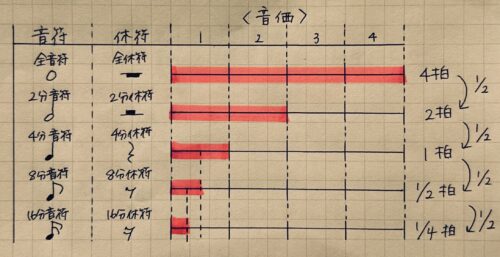 〈音価〉
音符 休符 1 2 3 4
全音符 全休符
4拍
1/2
2分音符 2分休符
2拍
1/2
4分音符 4分休符
1拍
1/2
8分音符 8分休符
1/2拍
1/2
16分音符 16分休符
1/4拍